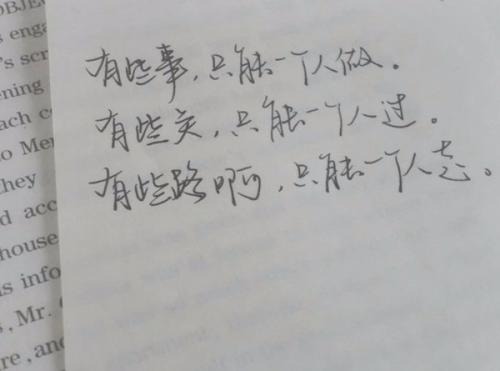 OBJE
s enga
's scr
ening
ach c
o Mer
they
d acc
house
s info
, Mr.
re, and
有些事,只能一个人做。
有些关,只能一个人过。
有些路啊,只能一个人走。